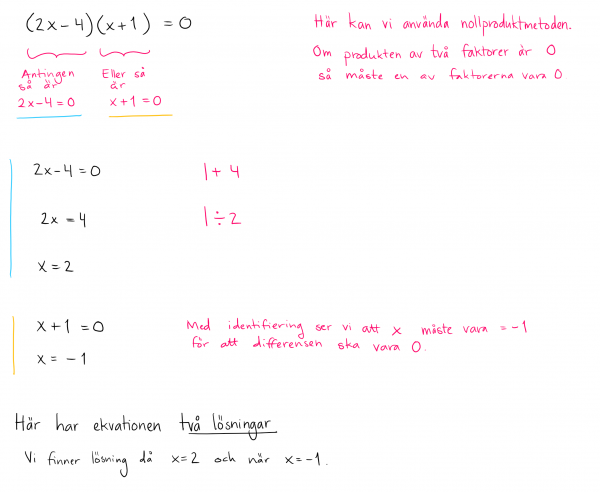 (2x-4)(x+1) = 0
Här kan vi använda nollproduktmetoden.
Om produkten av två faktorer är 0
så måste en av faktorerna vara 0
Antingen så är 2x-4=0
Eller så är x+1=0
2x-4=0 |+ 4
2x = 4 |÷2
x = 2
x+1 =0
Med identifiering ser vi att x måste vara = -1
för att differensen ska vara 0.
x = -1
Här har ekvationen två lösningar
Vi finner lösning då x=2 och när x=-1.